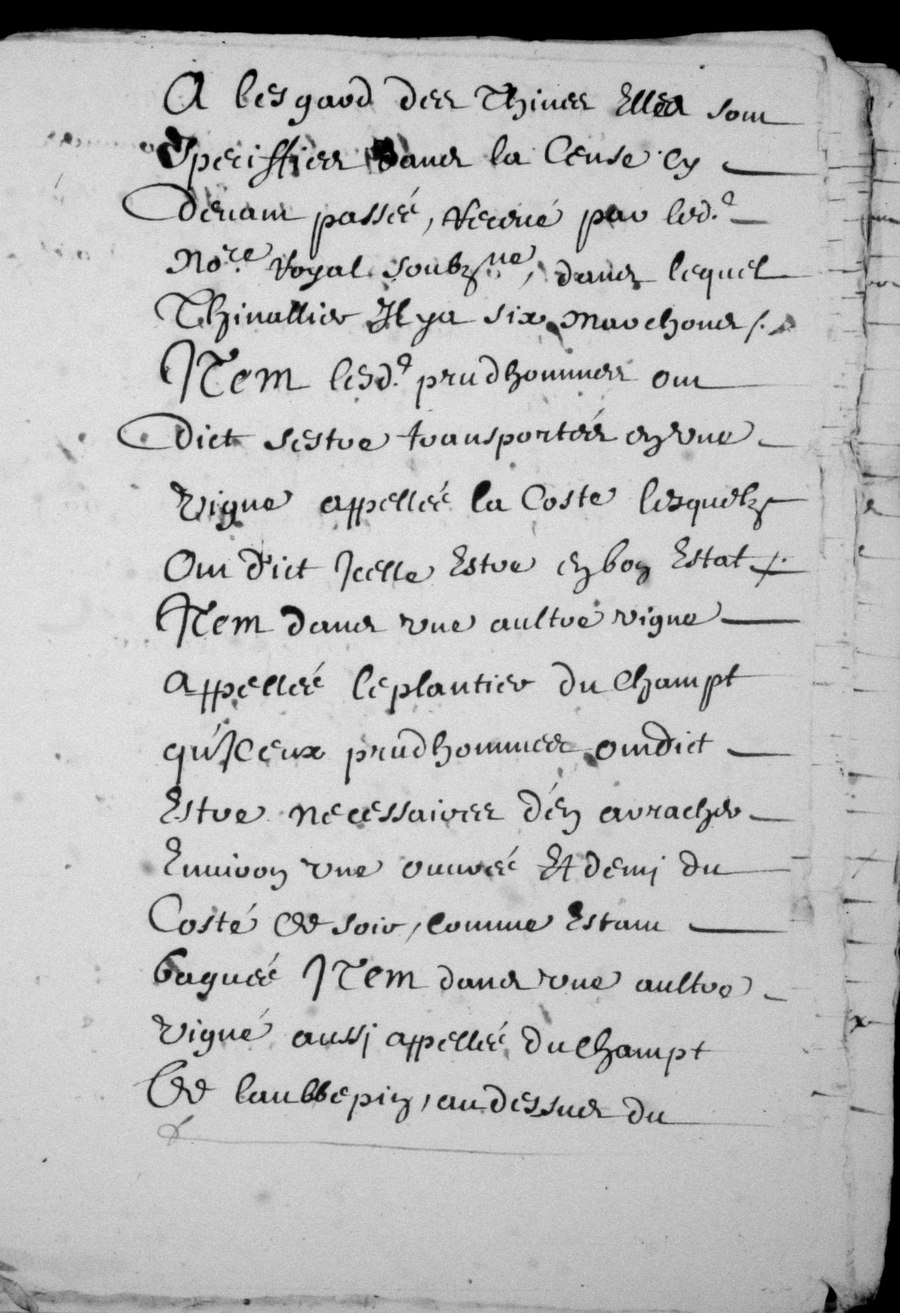 A lesgard des Thines Elles sont
Speciffiees dans la Cense Cy
devant passéé, Receue par led.t
No.re Royal soubz.ne, dans lequel
Thinallier Il ya six marchons /.
ITem lesd.t prud'hommes ont
dict sestre transportéés en une
vigne appelléé la Coste lesquelz
Ont dict Icelle Estre en bon Estat /.
ITem dans une aultre vigne
appelléé le plantier du Champt
qu'Iceux prud'hommes ont dict
Estre necessaires d'en arracher
Environ une ouvréé Et demi du
Costé de soir, Comme Estant
ITem dans une aultre
vigne aussi appelléé du Champt
De laubbepin, au dessus du